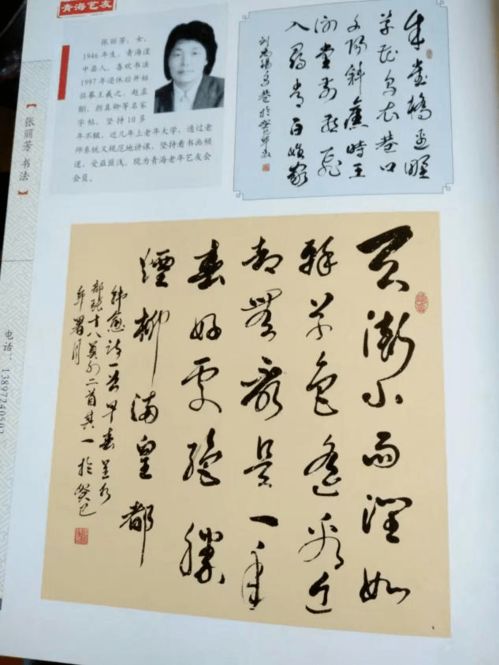 青海艺友
【张丽芳 书法】
张丽芳，女，
1946年生，青海湟
中县人，喜欢书法
1997年退休后开始
临摹王羲之、赵孟
頫、孙真卿等名家
字帖，坚持10多
年不辍，近几年上老年大学，通过老
师系统又规范地讲课，坚持看书画频
道，受益匪浅，现为青海老年艺友会
会员。
朱雀桥边野
草花乌衣巷口
夕阳斜旧时王
谢堂前燕飞
入寻常百姓家
天街小雨润如
酥草色遥看近
却无最是一年
春好处绝胜
烟柳满皇都
韩愈诗一首早春呈水
部张十八员外二首其一于癸巳
年署月